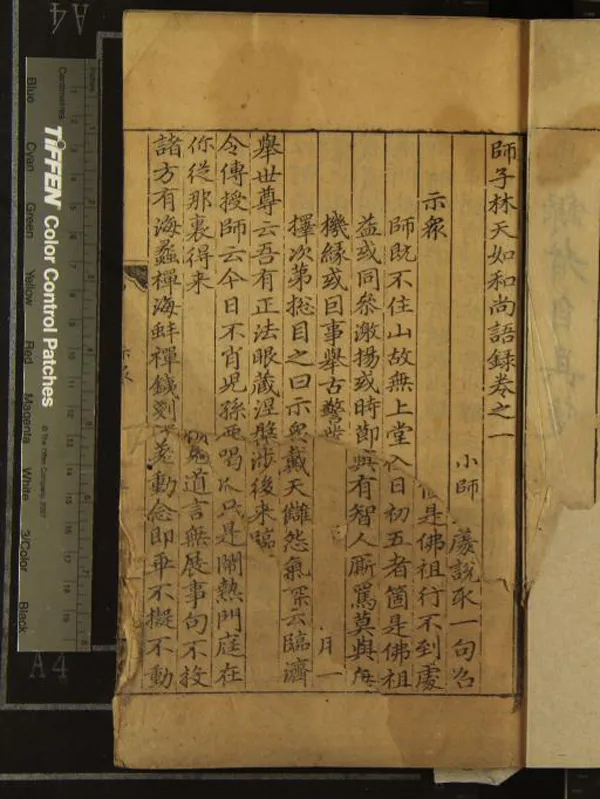 師子林天如和尚語錄卷之一
小師 處說取一句
示衆 是佛祖行不到處
師既不住山故無上堂入日初五者箇是佛祖
益或同叅激揚或時節與有智人廝罵莫與無
機緣或因事舉古警 月一
擇次第揔目之曰示衆戴天讎怨氣深云臨濟
舉世尊云吾有正法眼藏涅槃涉後來臨
令傳授師云今日不肖兒孫兩喝 只是鬧熱門庭在
你從那裏得來 道言無展事句不投
諸方有海蠡禪海蚌禪錢 差動念即乖不擬不動
示衆
TIFFEN Color Control Patches
© The Tiffen Company, 2007
Centimetres
Inches
Blue
Cyan
Green
Yellow
Red
Magenta
White
3/Color
Black
A4
A4